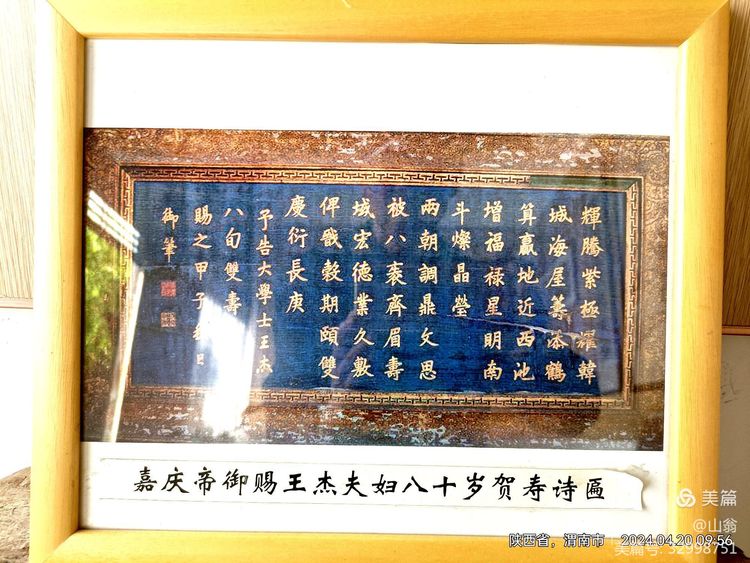 輝騰紫極耀韓
城海屋籌添鶴
筭贏地近西池
增福禄星明南
斗燦晶瑩
兩朝調鼎文思
被八袠齊眉壽
域宏德業久敷
俾戩穀期頤雙
慶衍長庚
予告大學士王杰
八旬雙壽
賜之甲子日
御筆
嘉庆帝御赐王杰夫妇八十岁贺寿诗匾
美篇
@山翁
陕西省，渭南市 2024.04.20 09:56
美篇号: 32998751